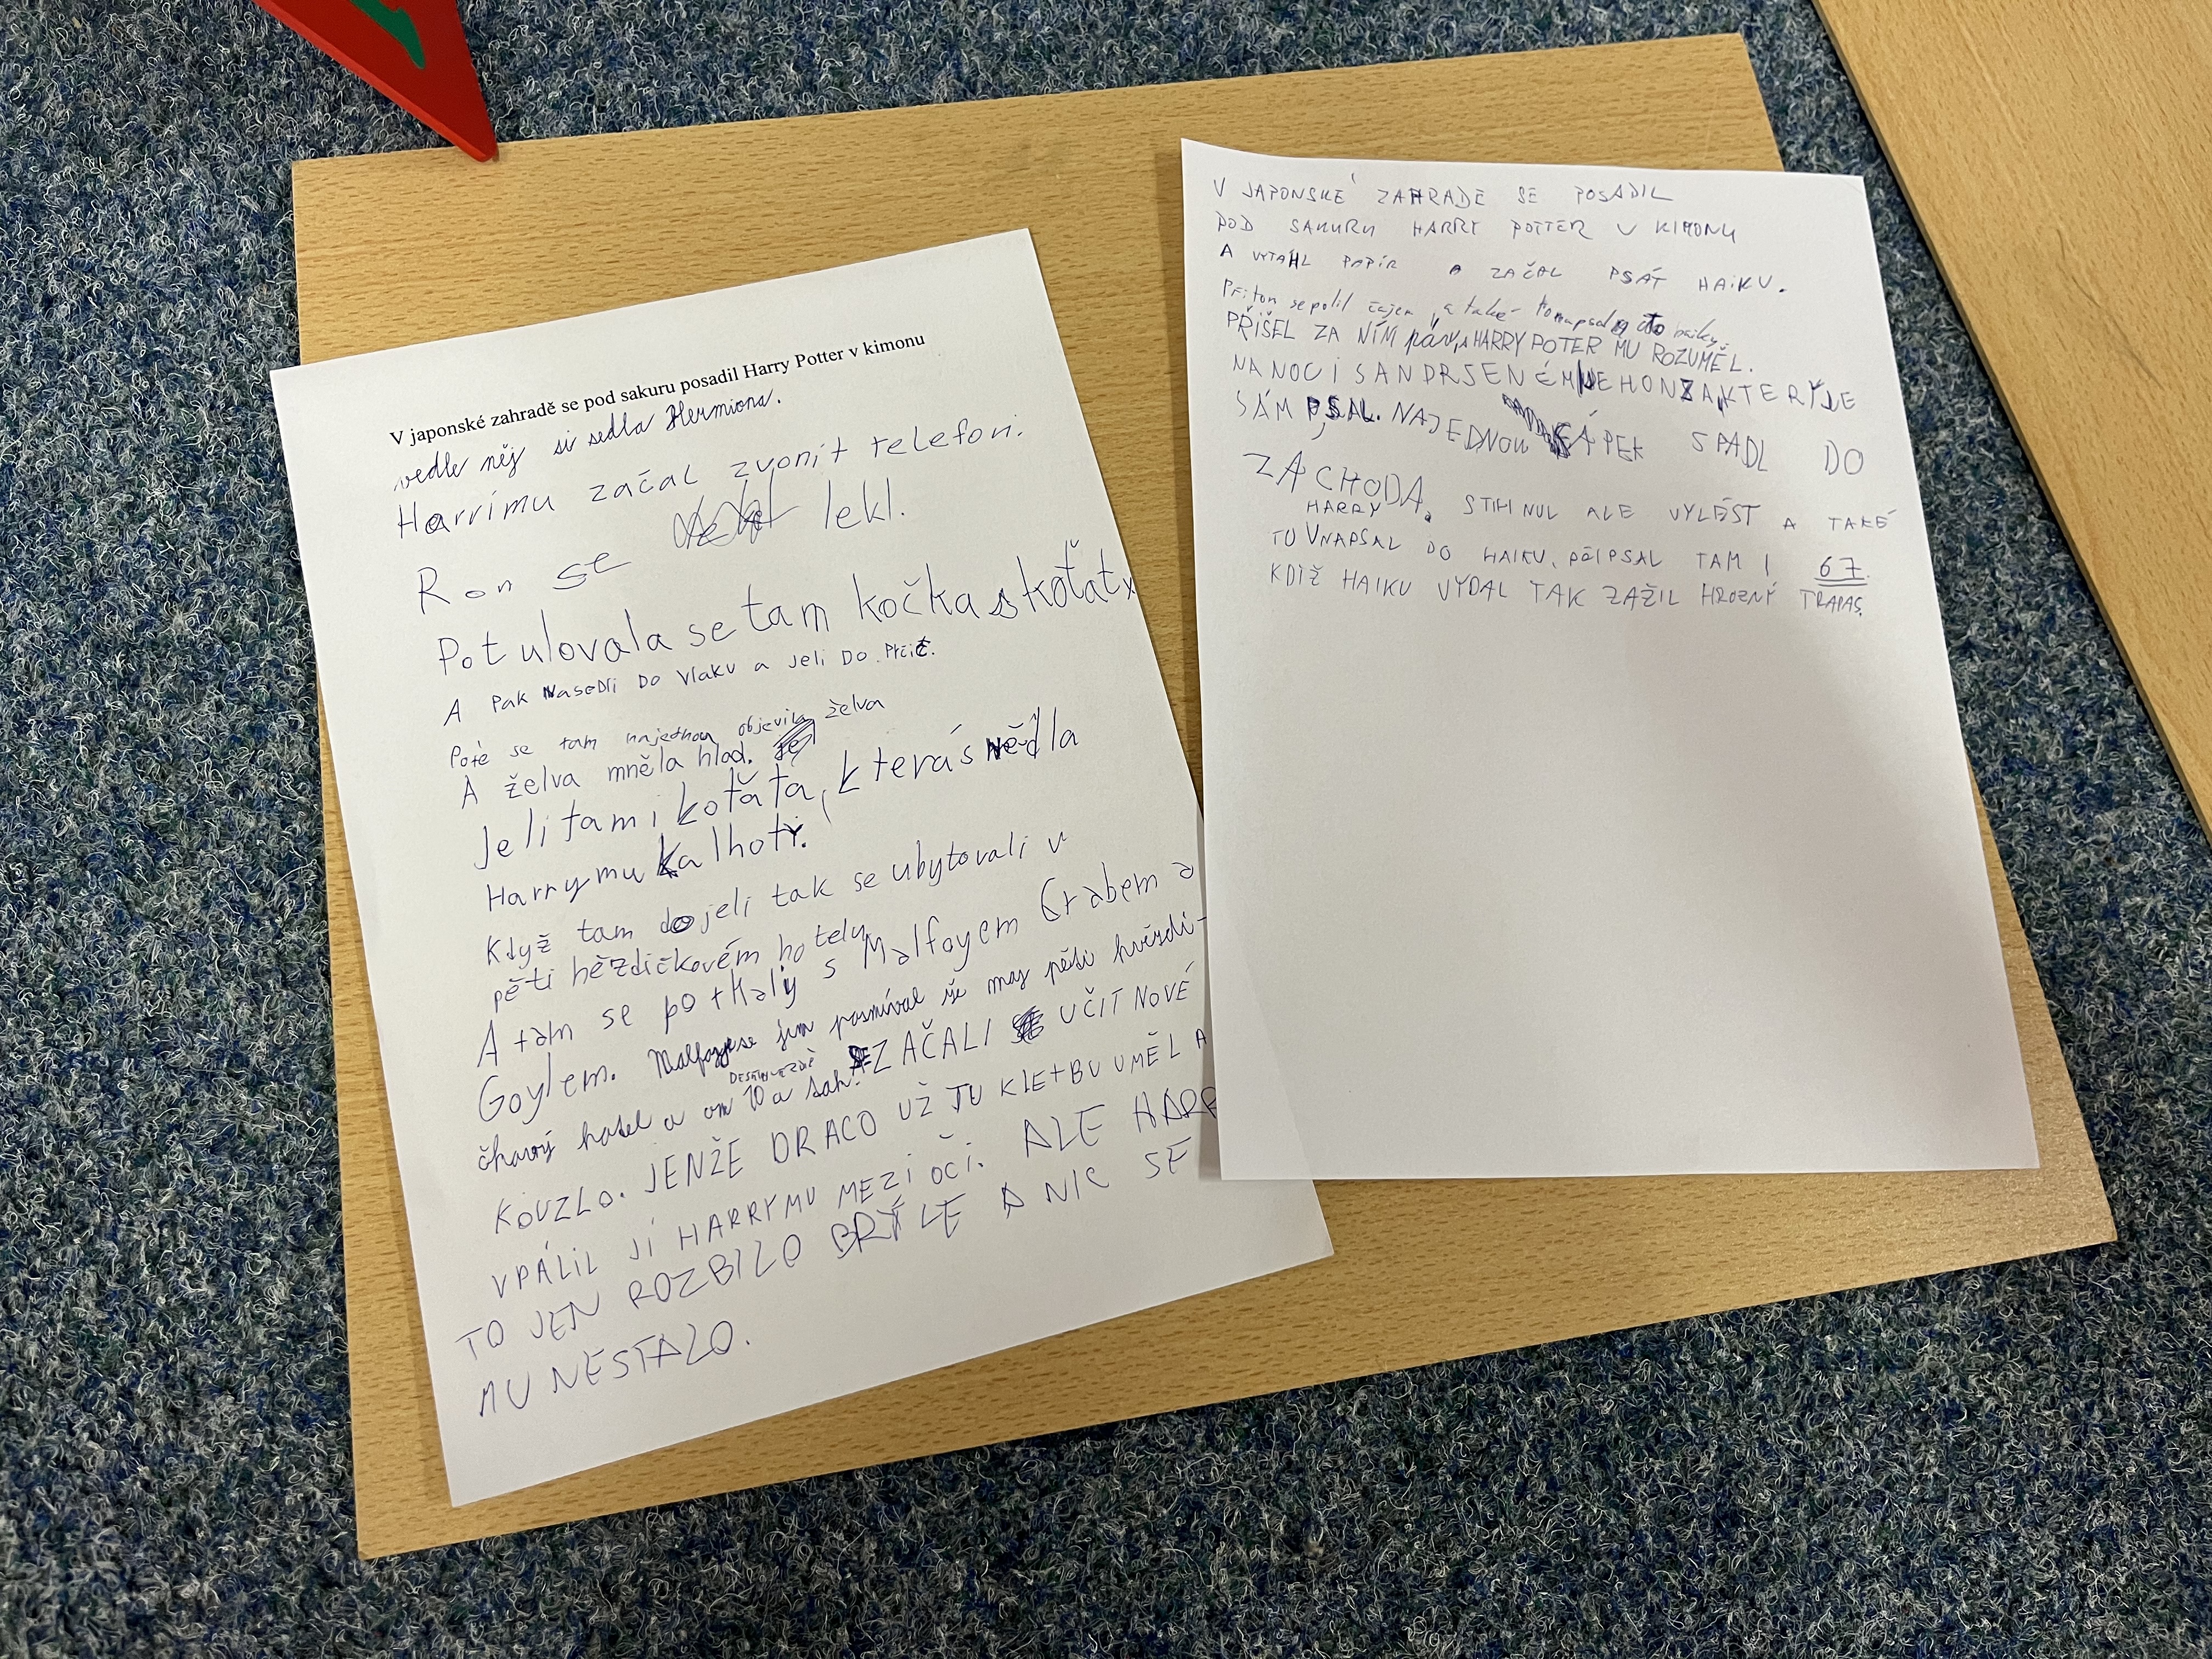 V japonské zahradě se pod sakuru posadil Harry Potter v kimonu
vedle něj si sedla Hermiona.
Harrimu začal zvonit telefon.
Ron se lekl.
Potulovala se tam kočka s koťaty
A Pak NaseDli Do Vlaku a Jeli Do Prčič.
Poté se tam najednou objevila želva
A želva mněla hlad.
Jeli tam i koťata, která snědla
Harrymu kalhoty.
Když tam dojeli tak se ubytovali v
pěti hězdičkovém hotely
A tam se potkaly s Malfoyem Crabem a
Goylem. Malfoy se jim posmíval že maj pěti hvězdi-
čkový hotel a on 10 a
ZAČALI UČIT NOVÉ
KOUZLO. JENŽE DRACO UŽ TU KLETBU UMĚL A
VPÁLIL JÍ HARRYMU MEZI OČI. ALE HARR
TO JEN ROZBILO BRÝLE A NIC SE
MU NESTALO.
V JAPONSKÉ ZAHRADE SE POSADIL
POD SAKURU HARRY POTTER V KIMONU
A VYTÁHL PAPÍR A ZAČAL PSÁT HAIKU.
Přitom se polil čajem, a také to napsal do haiky.
PŘIŠEL ZA NÍM páv, A HARRY POTER MU ROZUMĚL.
NA NOC I S ANDRSENÉM KTERÝ JE
SÁM PSAL. NAJEDNOU ČÁPEK SPADL DO
ZÁCHODA, STIHNUL ALE VYLÉST A TAKÉ
TO HARRY NAPSAL DO HAIKU, PŘIPSAL TAM I 67.
KDIŽ HAIKU VYDAL TAK ZAŽIL HROZNÝ TRAPAS.